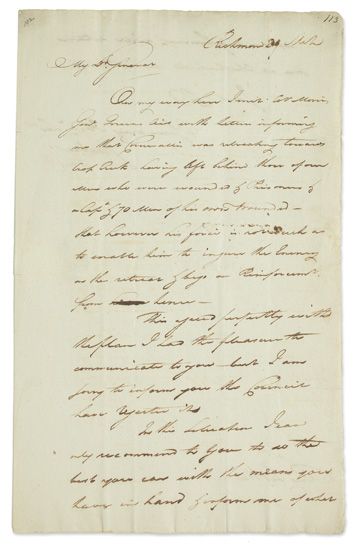 113
Richmond 30 March
My Dr General
On my way here I met Col Morris
Genl Greene's with letters informing
me that Cornwallis was retreating towards
Creek having left behind those of our
Men who were wounded & Prisoners &
a Capt & 70 Men of his own Wounded —
that however his force is not such as
to enable him to injure the Enemy
in the retreat & begs a Reinforcemt
from hence —
This agreed perfectly with
the plan I had the pleasure to
communicate to you but I am
sorry to inform you the Council
have rejected it
In this situation I can
only recommend to you to do the
best you can with the means you
have in hand & inform me of what